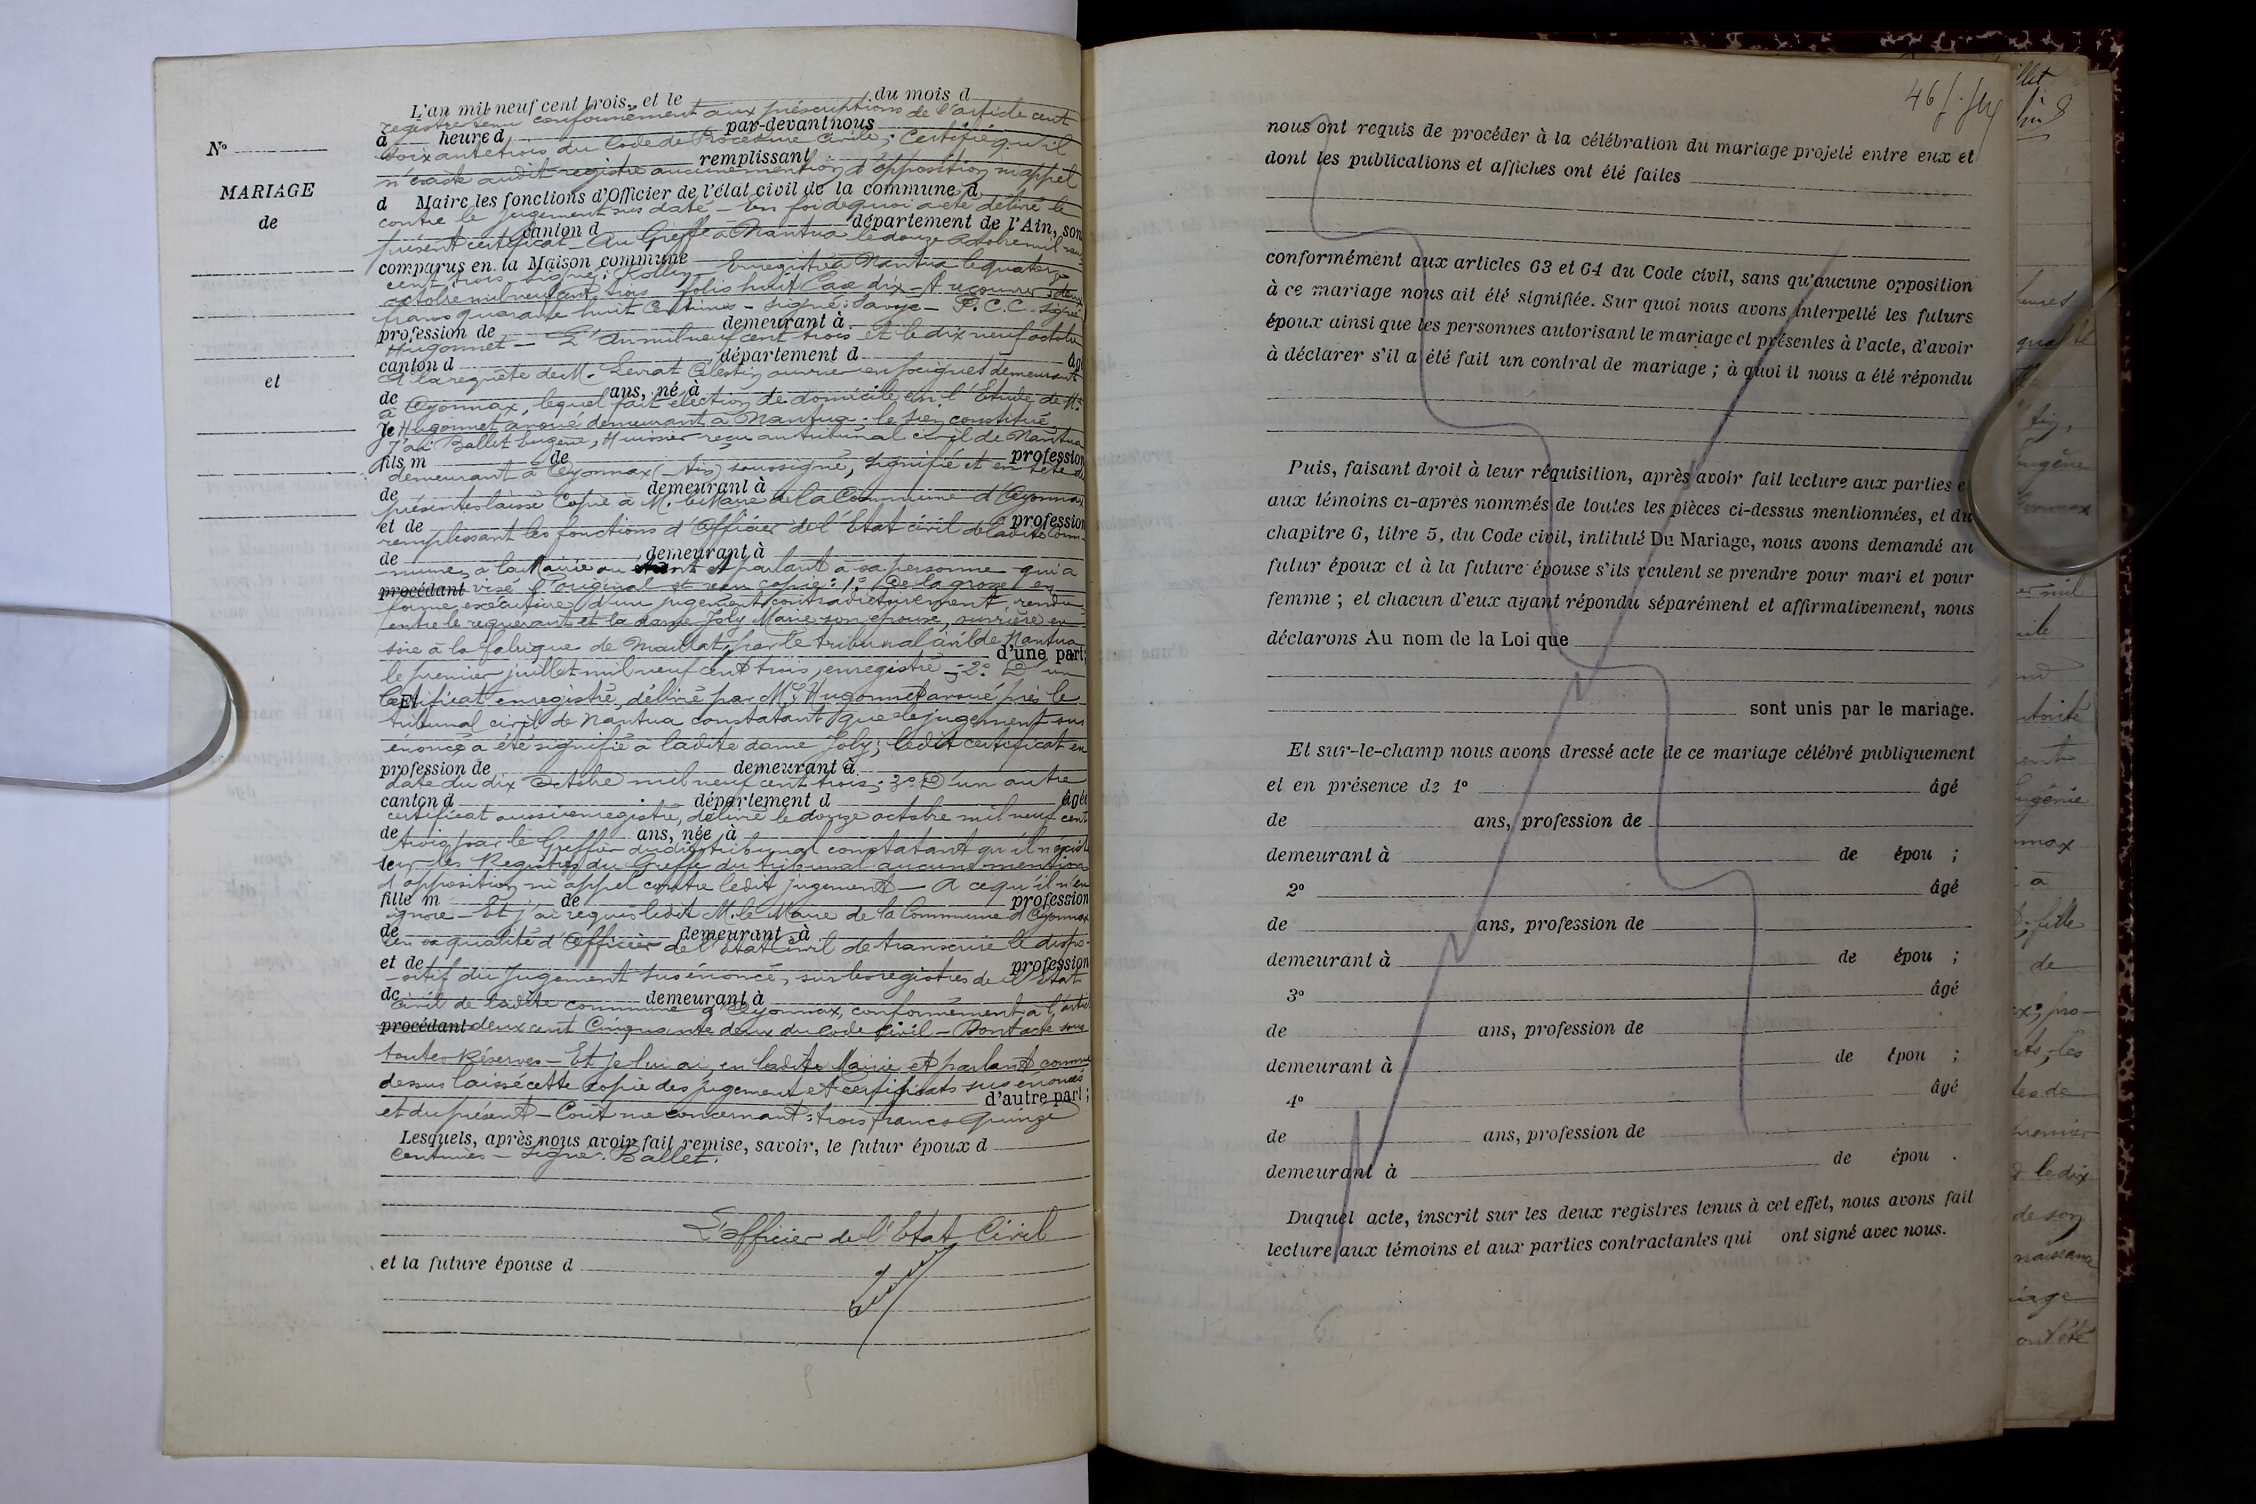 L'an mil neuf cent trois, et le du mois d
registre tenu conformément aux prescriptions de l'article cent
à heure d par-devant nous
soixante trois du Code de Procédure Civile ; Certifie qu'il
remplissant
n'existe audit registre aucune mention d'opposition ni appel
d Maire les fonctions d'Officier de l'état civil de la commune d
contre le jugement sus daté - En foi de quoi a été délivré le
canton d département de l'Ain, son
présent certificat - Au Greffe à Nantua le douze octobre mil neuf
comparus en la Maison commune
cent trois signé : Kolly - Enregistré à Nantua le quatorze
octobre mil neuf cent trois folio huit Case dix - A recouvrer : deux
francs quarante huit Centimes - Signé : - P.C.C. Signé
profession de demeurant à
Hugonnet - L'an mil neuf cent trois et le dix neuf octobre
canton d département d âg
A la requête de M. Levrat Célestin ouvrier en peignes demeurant
de ans, né à
à Oyonnax, lequel fait élection de domicile en l'Etude de Me
Je
Hugonnet avoué demeurant à Nantua ; le sien constitué
J'ai Ballet Eugène, Huissier reçu au tribunal civil de Nantua
fils m de profession
demeurant à Oyonnax (Ain) soussigné, signifié et en tête d
de demeurant à
présentes laissé Copie à M. le Maire de la Commune d'Oyonnax
et de profession
remplissant les fonctions d'Officier de l'Etat civil de ladite Com-
de demeurant à
mune, à la Mairie ou étant et parlant à sa personne qui a
procédant visé l'original et reçu copie : 1° De la grosse en
forme exécutoire d'un jugement contradictoirement rendu
entre le requérant et la dame Joly Marie son épouse, ouvrière en
soie à la fabrique de Maillat, par le tribunal civil de Nantua
d'une part ;
le premier juillet mil neuf cent trois, enregistré ; 2° D'un
Et
Certificat enregistré, délivré par Me Hugonnet avoué près le
tribunal civil de Nantua constatant que le jugement sus
énoncé a été signifié à ladite dame Joly ; ledit certificat en
profession de demeurant à
date du dix Octobre mil neuf cent trois ; 3° D'un autre
canton d département d âgé
certificat aussi enregistré, délivré le douze octobre mil neuf cent
de ans, née à
trois par le Greffier dudit tribunal constatant qu'il n'existe
sur les Registres du Greffe du tribunal aucune mention
d'opposition ni appel contre ledit jugement - A ce qu'il n'en
fille m de profession
ignore - Et j'ai requis ledit M. le Maire de la Commune d'Oyonnax
de demeurant à
en sa qualité d'Officier de l'Etat Civil de transcrire le dispo-
et de profession
sitif du Jugement sus énoncé, sur les registres de l'Etat
de demeurant à
civil de ladite commune d'Oyonnax, conformément à l'article
procédant deux cent Cinquante deux du Code Civil - Dont acte sous
toutes Réserves - Et je lui ai, en ladite Mairie et parlant comme
dessus laissé cette copie des jugement et certificats sus énoncés
d'autre part ;
et du présent - Coût me concernant : trois francs quinze
Lesquels, après nous avoir fait remise, savoir, le futur époux d
Centimes - Signé : Ballet.
L'officier de l'Etat Civil
et la future épouse d
N°
MARIAGE
de
et
46
nous ont requis de procéder à la célébration du mariage projeté entre eux et
dont les publications et affiches ont été faites
conformément aux articles 63 et 64 du Code civil, sans qu'aucune opposition
à ce mariage nous ait été signifiée. Sur quoi nous avons interpellé les futurs
époux ainsi que les personnes autorisant le mariage et présentes à l'acte, d'avoir
à déclarer s'il a été fait un contrat de mariage ; à quoi il nous a été répondu
Puis, faisant droit à leur réquisition, après avoir fait lecture aux parties e
aux témoins ci-après nommés de toutes les pièces ci-dessus mentionnées, et du
chapitre 6, titre 5, du Code civil, intitulé Du Mariage, nous avons demandé au
futur époux et à la future épouse s'ils veulent se prendre pour mari et pour
femme ; et chacun d'eux ayant répondu séparément et affirmativement, nous
déclarons Au nom de la Loi que
sont unis par le mariage.
Et sur-le-champ nous avons dressé acte de ce mariage célébré publiquement
et en présence de 1° âgé
de ans, profession de
demeurant à de épou ;
2° âgé
de ans, profession de
demeurant à de épou ;
3° âgé
de ans, profession de
demeurant à de épou ;
4° âgé
de ans, profession de
demeurant à de épou .
Duquel acte, inscrit sur les deux registres tenus à cet effet, nous avons fait
lecture aux témoins et aux parties contractantes qui ont signé avec nous.